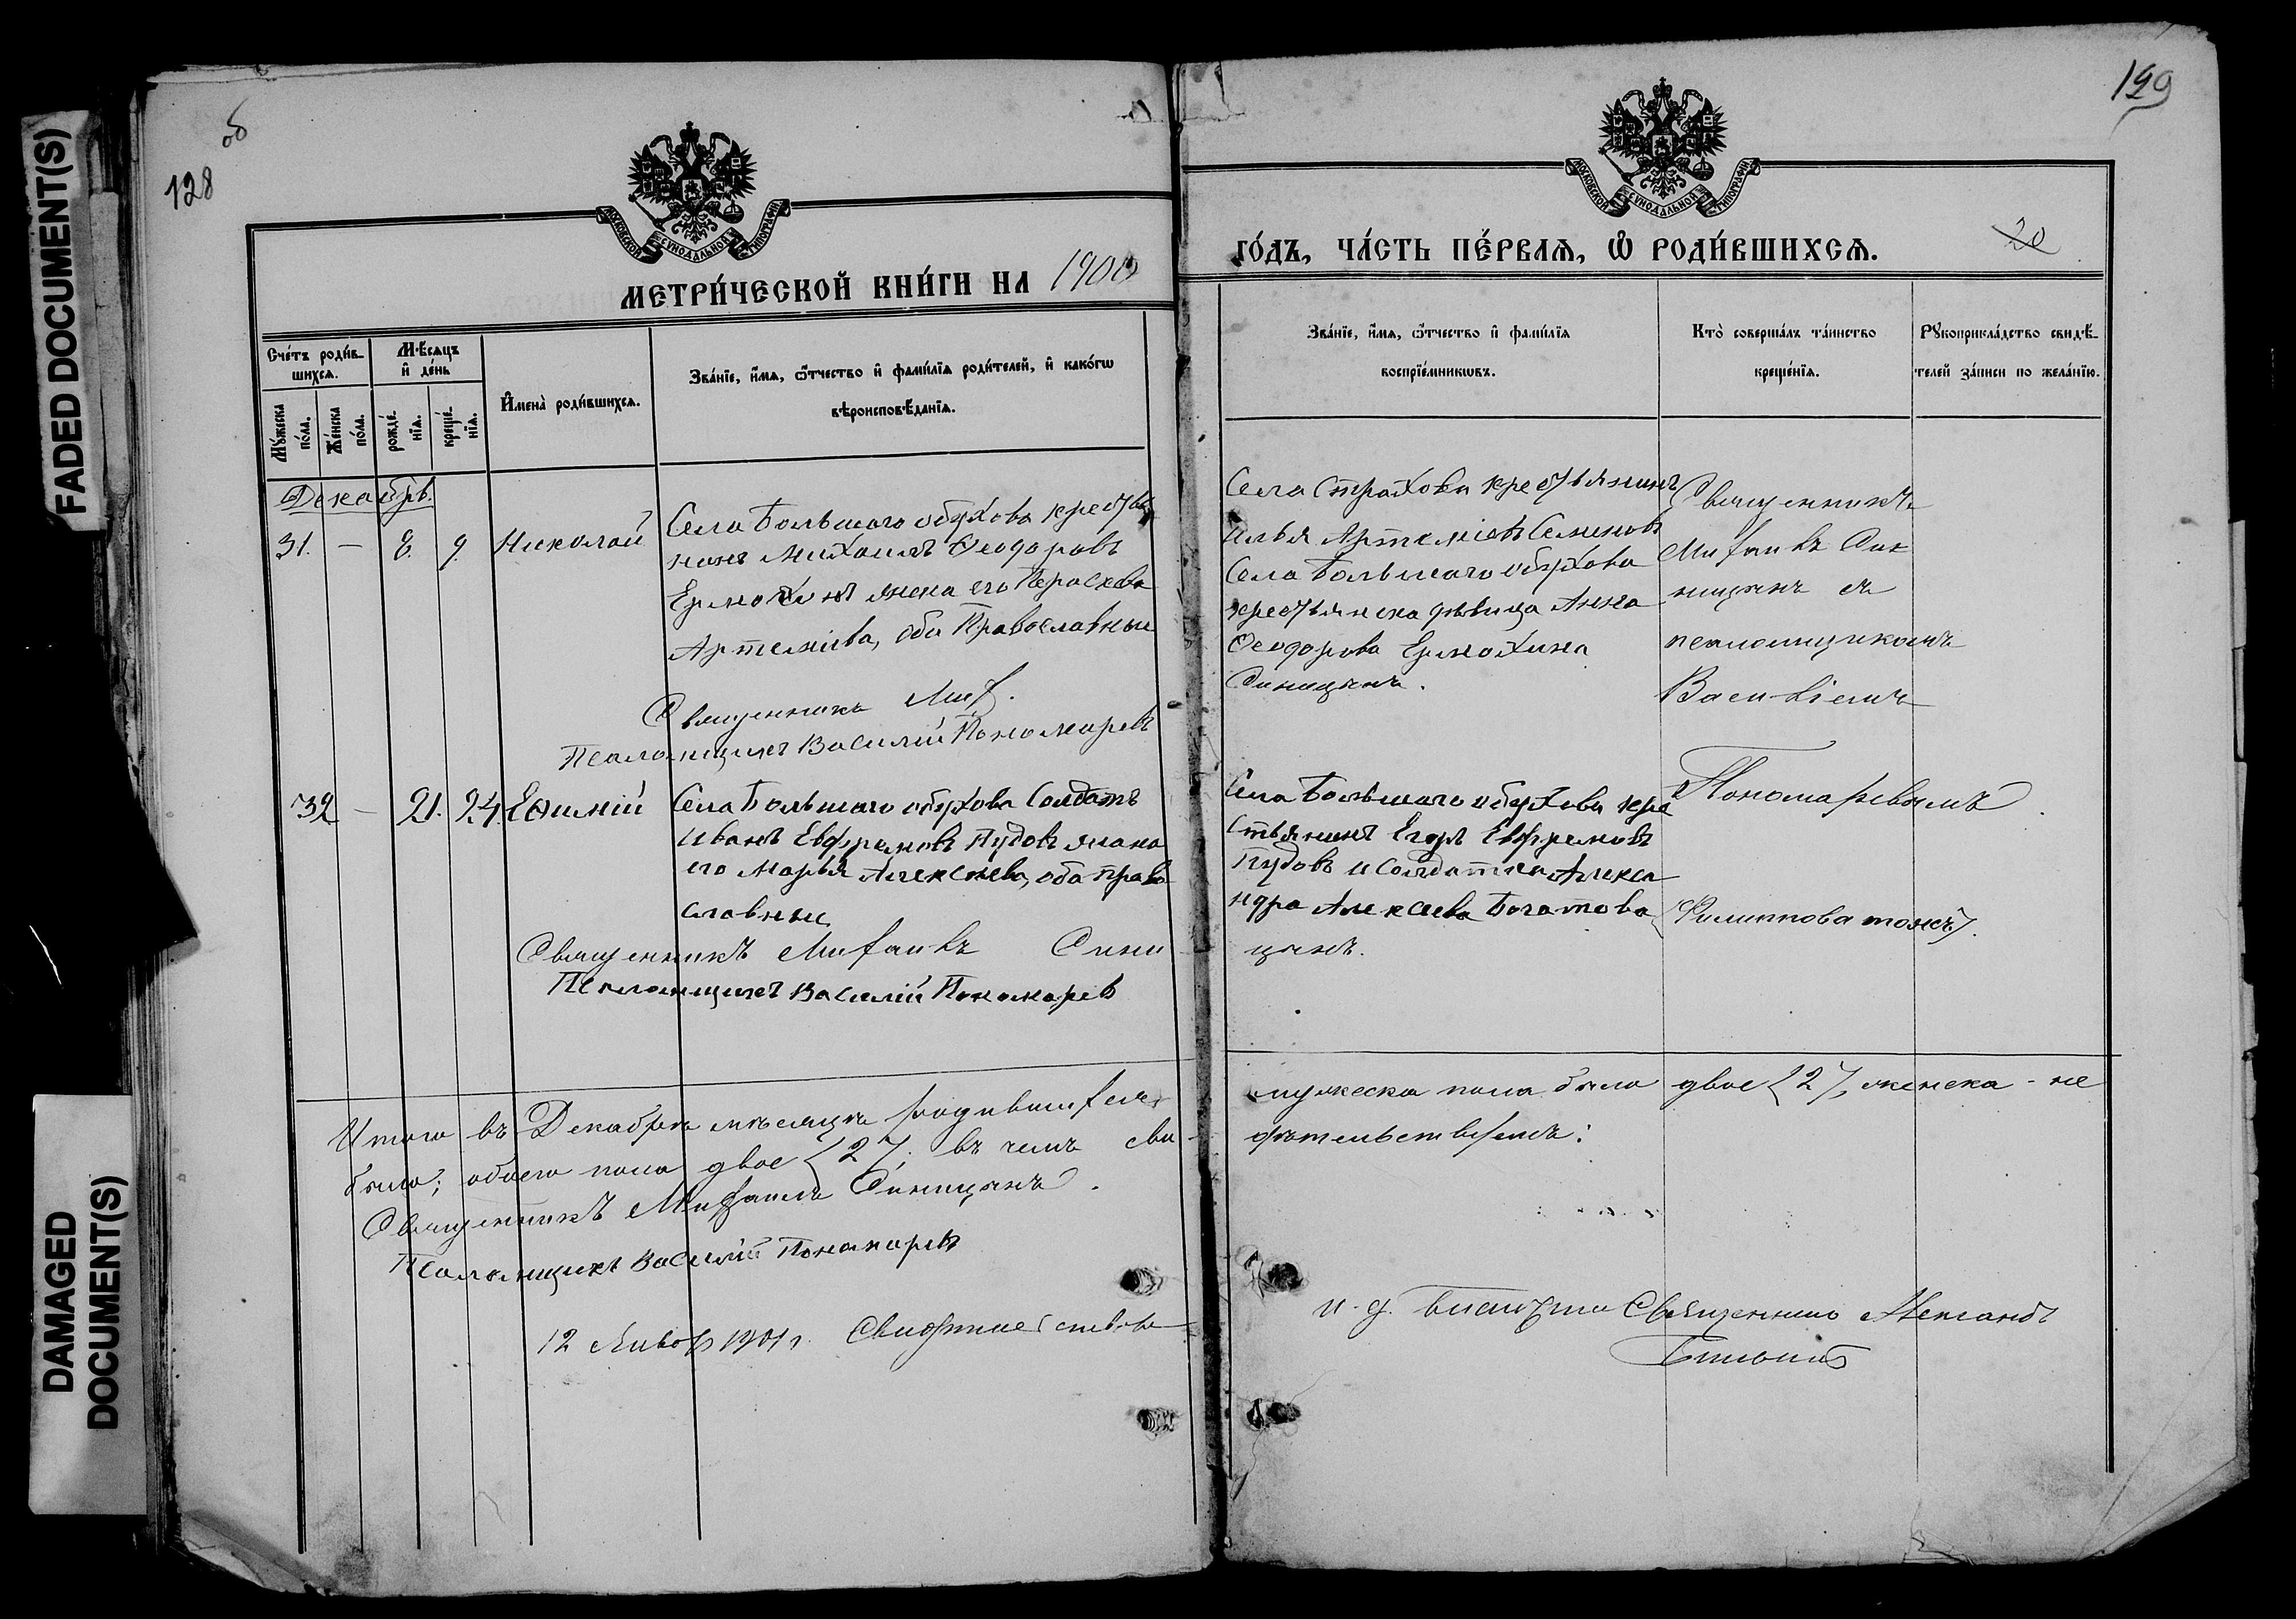 FADED DOCUMENT(S)
DAMAGED
DOCUMENT(S)
об
128
МОСКОВСКОЙ СѴНОДАЛЬНОЙ ТИПОГРАФІИ
МЕТРИ́ЧЕСКОЙ КНИ́ГИ НА 1900
Сче́тъ роди́в-
шихсѧ.
Мѣ́сѧцъ
и҆ де́нь
Мꙋ́жеска
по́ла.
Же́нска
по́ла.
рожде́-
нїѧ.
креще́-
нїѧ.
И҆мена̀ роди́вшихсѧ.
Зва́нїе, и҆́мѧ, ѻ҆́тчество и҆ фами́лїѧ роди́телей, и҆ како́гѡ
вѣроисповѣ́данїѧ.
Декабрь.
31. — 8. 9. Николай
Села Большаго обухова крестья
нинъ Михаилъ Ѳеодоровъ
Ермохинъ жена его Параскева
Артеміева, оба Православные
Священникъ Мих.
Псаломщикъ Василій Пономаревъ
32 — 21. 24. Евѳимій
Села Большаго обухова Солдатъ
Иванъ Евфремовъ Пудовъ жена
его Марья Алексѣева, оба право
славные
Священникъ Михаилъ Сини
Псаломщикъ Василій Пономаревъ
Итого въ Декабрѣ мѣсяцѣ родившихся
было; обоего пола двое (2). въ чемъ сви
Священникъ Михаилъ Синицынъ.
Псаломщикъ Василій Пономаревъ
12 Января 1901 г.
129
МОСКОВСКОЙ СѴНОДАЛЬНОЙ ТИПОГРАФІИ
ГО́ДЪ, ЧА́СТЬ ПЕ́РВАѦ, Ѽ РОДИ́ВШИХСѦ.
20
Зва́нїе, и҆́мѧ, ѻ҆́тчество и҆ фами́лїѧ
воспрїе́мникѡвъ.
Кто̀ соверша́лъ та́инство
креще́нїѧ.
Рꙋкоприкла́дство свидѣ́-
телей за́писи по жела́нїю.
Села Страхова крестьянинъ
Илья Артеміевъ Семеновъ
Села Большаго обухова
крестьянска дѣвица Анна
Ѳеодорова Ермохина
Синицынъ.
Священникъ
Михаилъ Син
ицынъ съ
псаломщикомъ
Василіемъ
Пономаревымъ
Села Большаго обухова кре
стьянинъ Егоръ Евфремовъ
Пудовъ и солдатка Алекса
ндра Алексѣева Богатова
(Филиппова тожъ).
цынъ.
мужеска пола было двое (2), женска - не
дѣтельствуемъ:
и. д. Священникъ